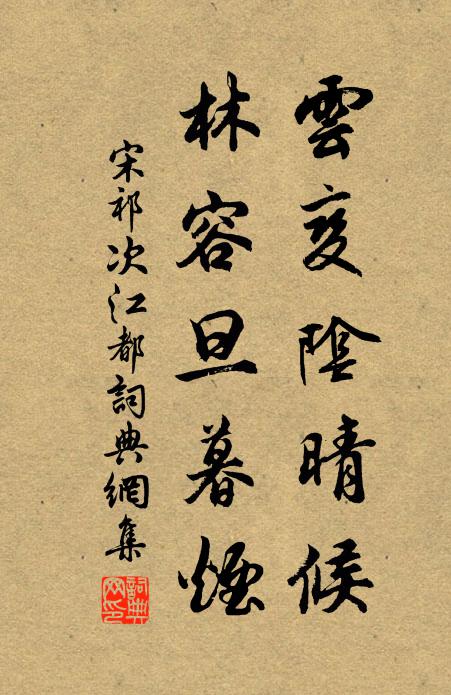 雲變陰晴候
林容旦暮煙
宋祁次江都詞典網集
詞典网印